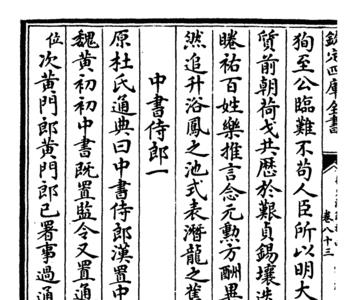 欽定四庫全書
卷八十三
徇至公臨難不苟人臣所以明大
質前朝荷戈共歷於艱貞錫壤迭
睠祐百姓樂推言念元勲方酬異
然追升浴鳳之池式表潛龍之舊
中書侍郎一
原杜氏通典曰中書侍郎漢置中
魏黄初初中書既置監令又置通
位次黄門郎黄門郎已署事過通